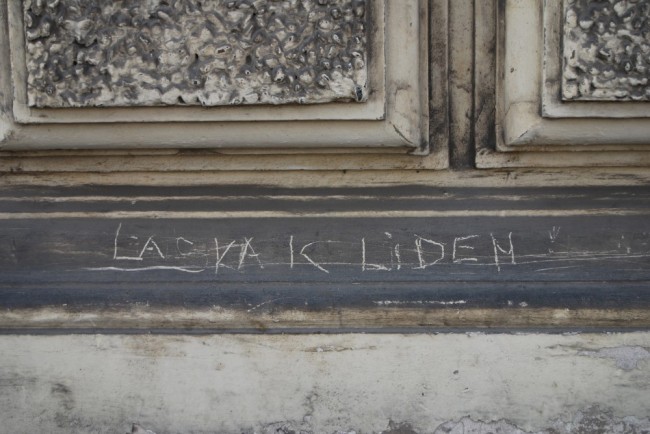 LASKA K LIDEM